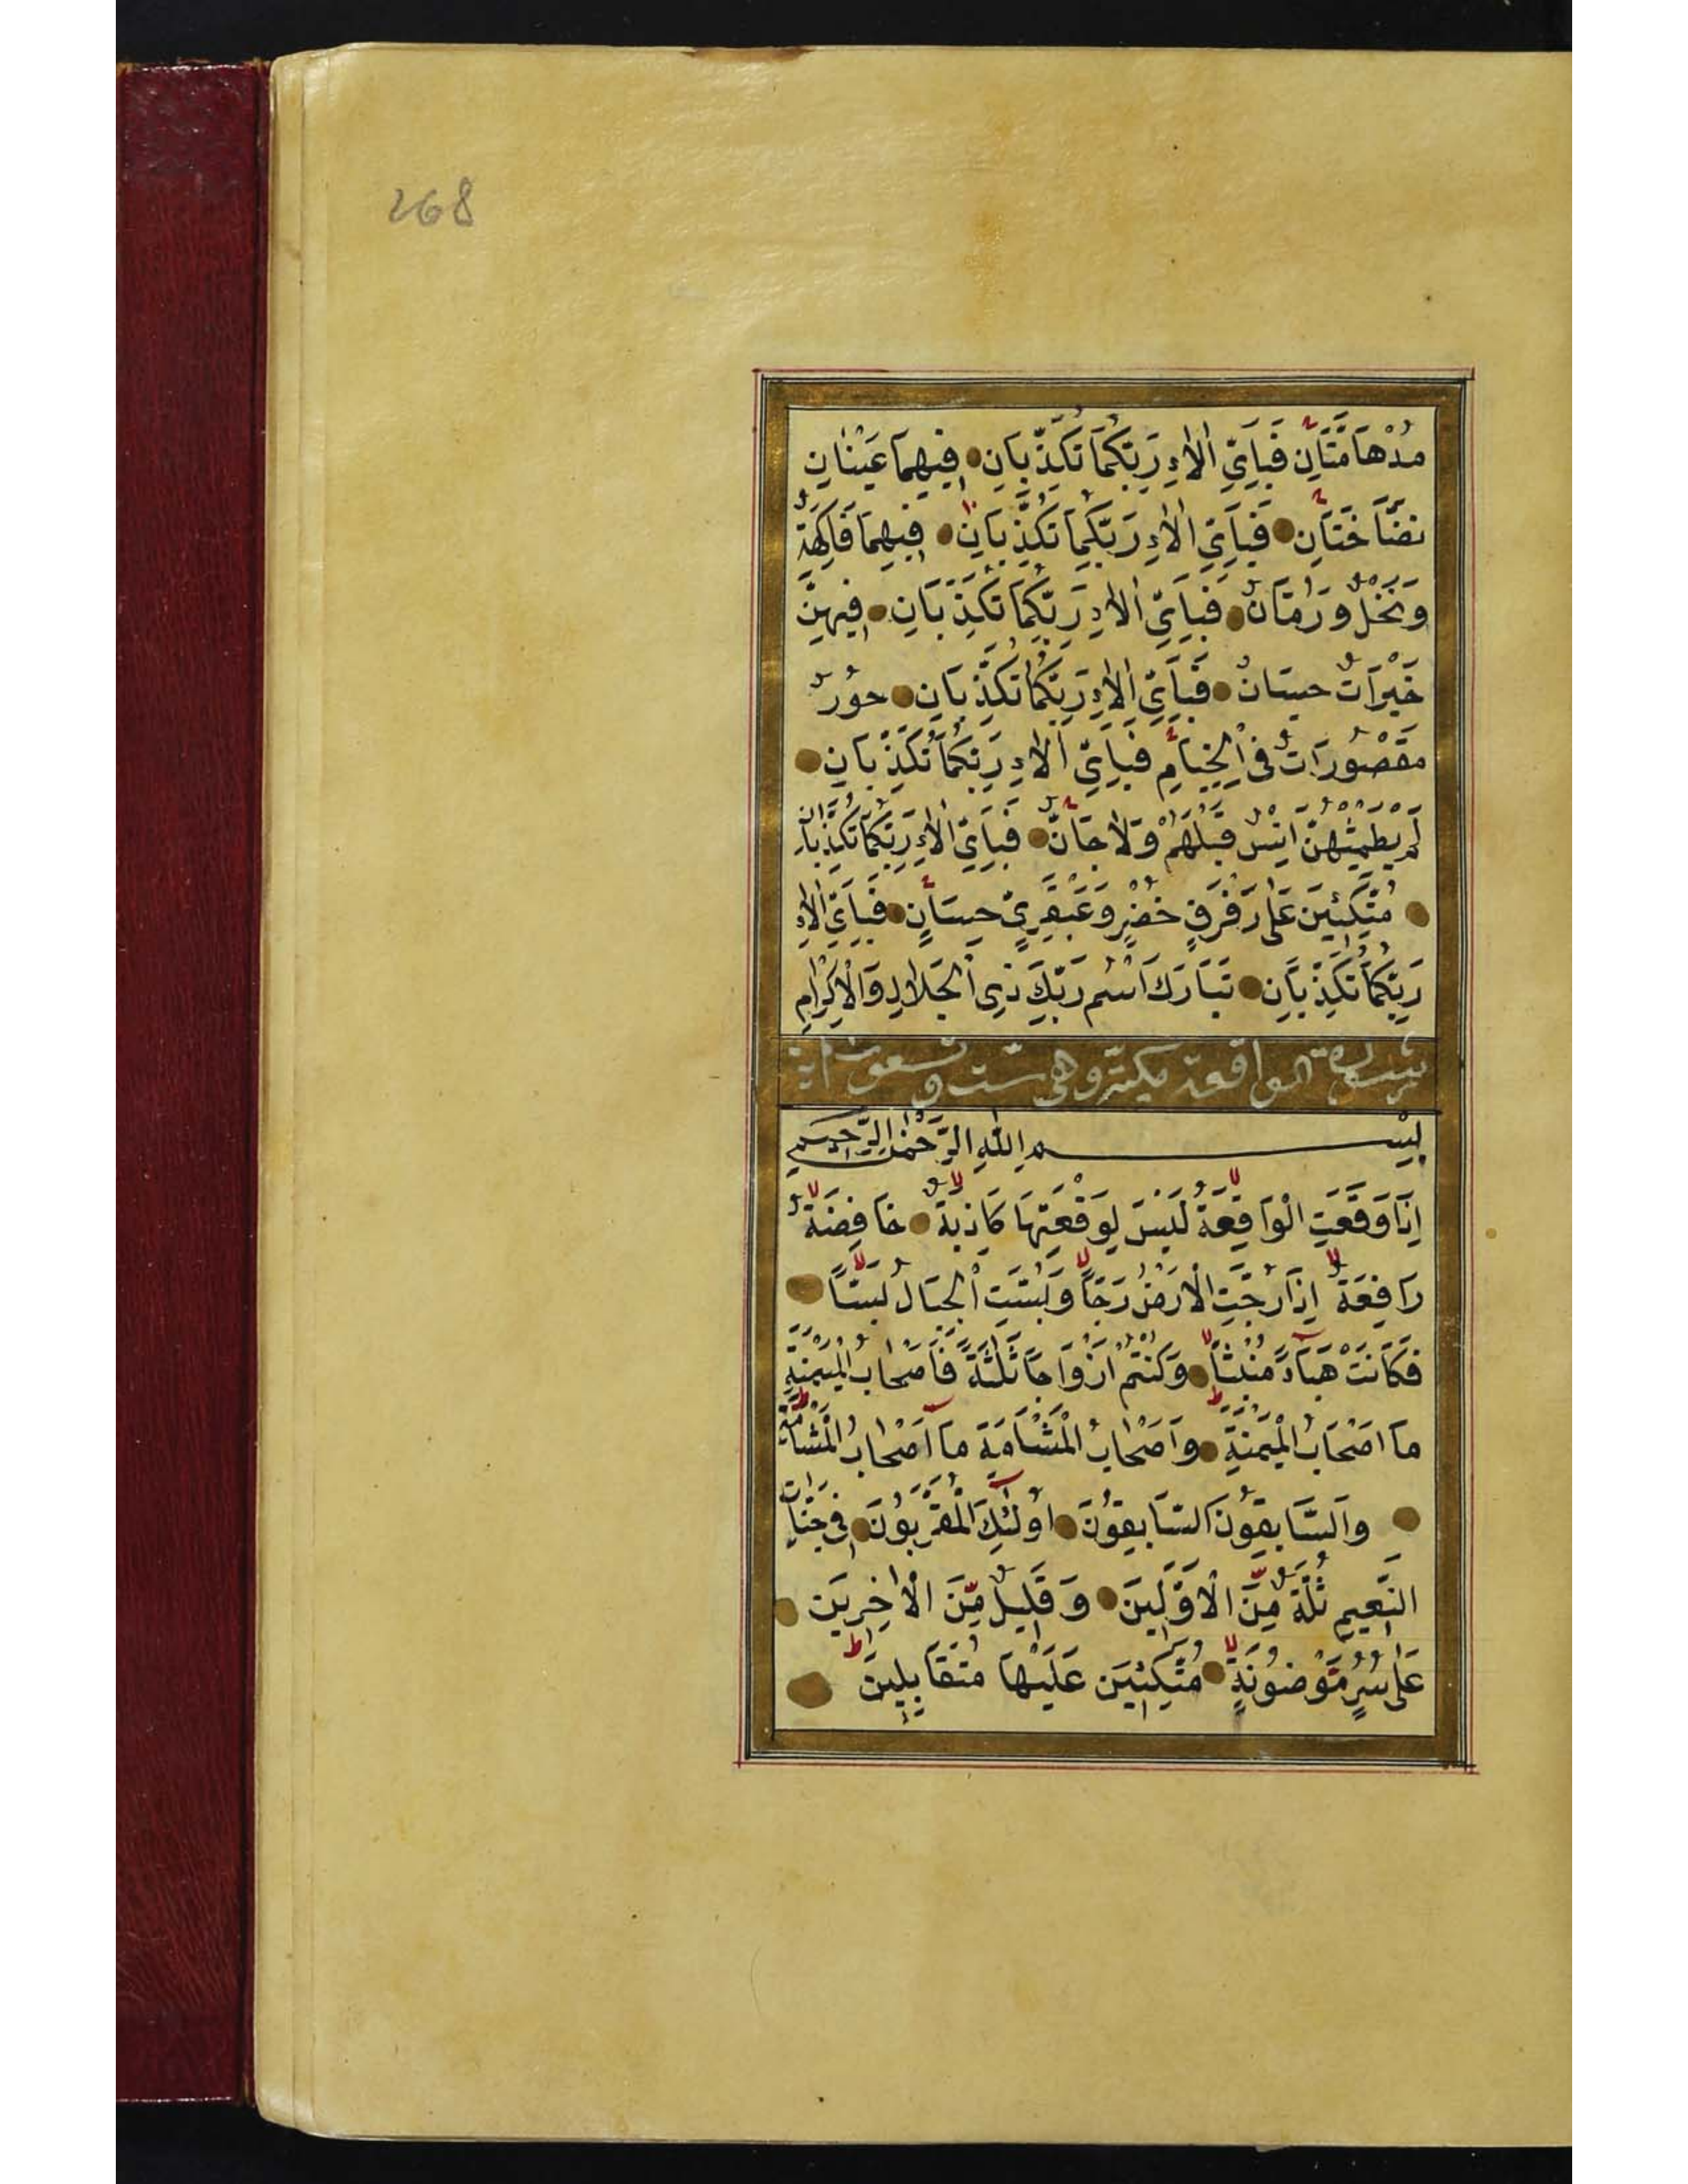 268
مُدْهَامَّتَانِ فَبِاَيِّ اٰلَاءِ رَبِّكُمَا تُكَذِّبَانِ فِيهِمَا عَيْنَانِ
نَضَّاخَتَانِ فَبِاَيِّ اٰلَاءِ رَبِّكُمَا تُكَذِّبَانِ فِيهِمَا فَاكِهَةٌ
وَنَخْلٌ وَرُمَّانٌ فَبِاَيِّ اٰلَاءِ رَبِّكُمَا تُكَذِّبَانِ فِيهِنَّ
خَيْرَاتٌ حِسَانٌ فَبِاَيِّ اٰلَاءِ رَبِّكُمَا تُكَذِّبَانِ حُورٌ
مَقْصُورَاتٌ فِى الْخِيَامِ فَبِاَيِّ اٰلَاءِ رَبِّكُمَا تُكَذِّبَانِ
لَمْ يَطْمِثْهُنَّ اِنْسٌ قَبْلَهُمْ وَلَا جَانٌّ فَبِاَيِّ اٰلَاءِ رَبِّكُمَا تُكَذِّبَانِ
مُتَّكِئِينَ عَلٰى رَفْرَفٍ خُضْرٍ وَعَبْقَرِيٍّ حِسَانٍ فَبِاَيِّ اٰلَاءِ
رَبِّكُمَا تُكَذِّبَانِ تَبَارَكَ اسْمُ رَبِّكَ ذِى الْجَلَالِ وَالْاِكْرَامِ
سورة الواقعة مكية وهى ست وتسعون اية
بِسْمِ اللّٰهِ الرَّحْمٰنِ الرَّحِيمِ
اِذَا وَقَعَتِ الْوَاقِعَةُ لَيْسَ لِوَقْعَتِهَا كَاذِبَةٌ خَافِضَةٌ
رَافِعَةٌ اِذَا رُجَّتِ الْاَرْضُ رَجًّا وَبُسَّتِ الْجِبَالُ بَسًّا
فَكَانَتْ هَبَآءً مُنْبَثًّا وَكُنْتُمْ اَزْوَاجًا ثَلٰثَةً فَاَصْحَابُ الْمَيْمَنَةِ
مَا اَصْحَابُ الْمَيْمَنَةِ وَاَصْحَابُ الْمَشْاَمَةِ مَا اَصْحَابُ الْمَشْاَمَةِ
وَالسَّابِقُونَ السَّابِقُونَ اُولٰئِكَ الْمُقَرَّبُونَ فِى جَنَّاتِ
النَّعِيمِ ثُلَّةٌ مِّنَ الْاَوَّلِينَ وَقَلِيلٌ مِّنَ الْاٰخِرِينَ
عَلٰى سُرُرٍ مَّوْضُونَةٍ مُتَّكِئِينَ عَلَيْهَا مُتَقَابِلِينَ